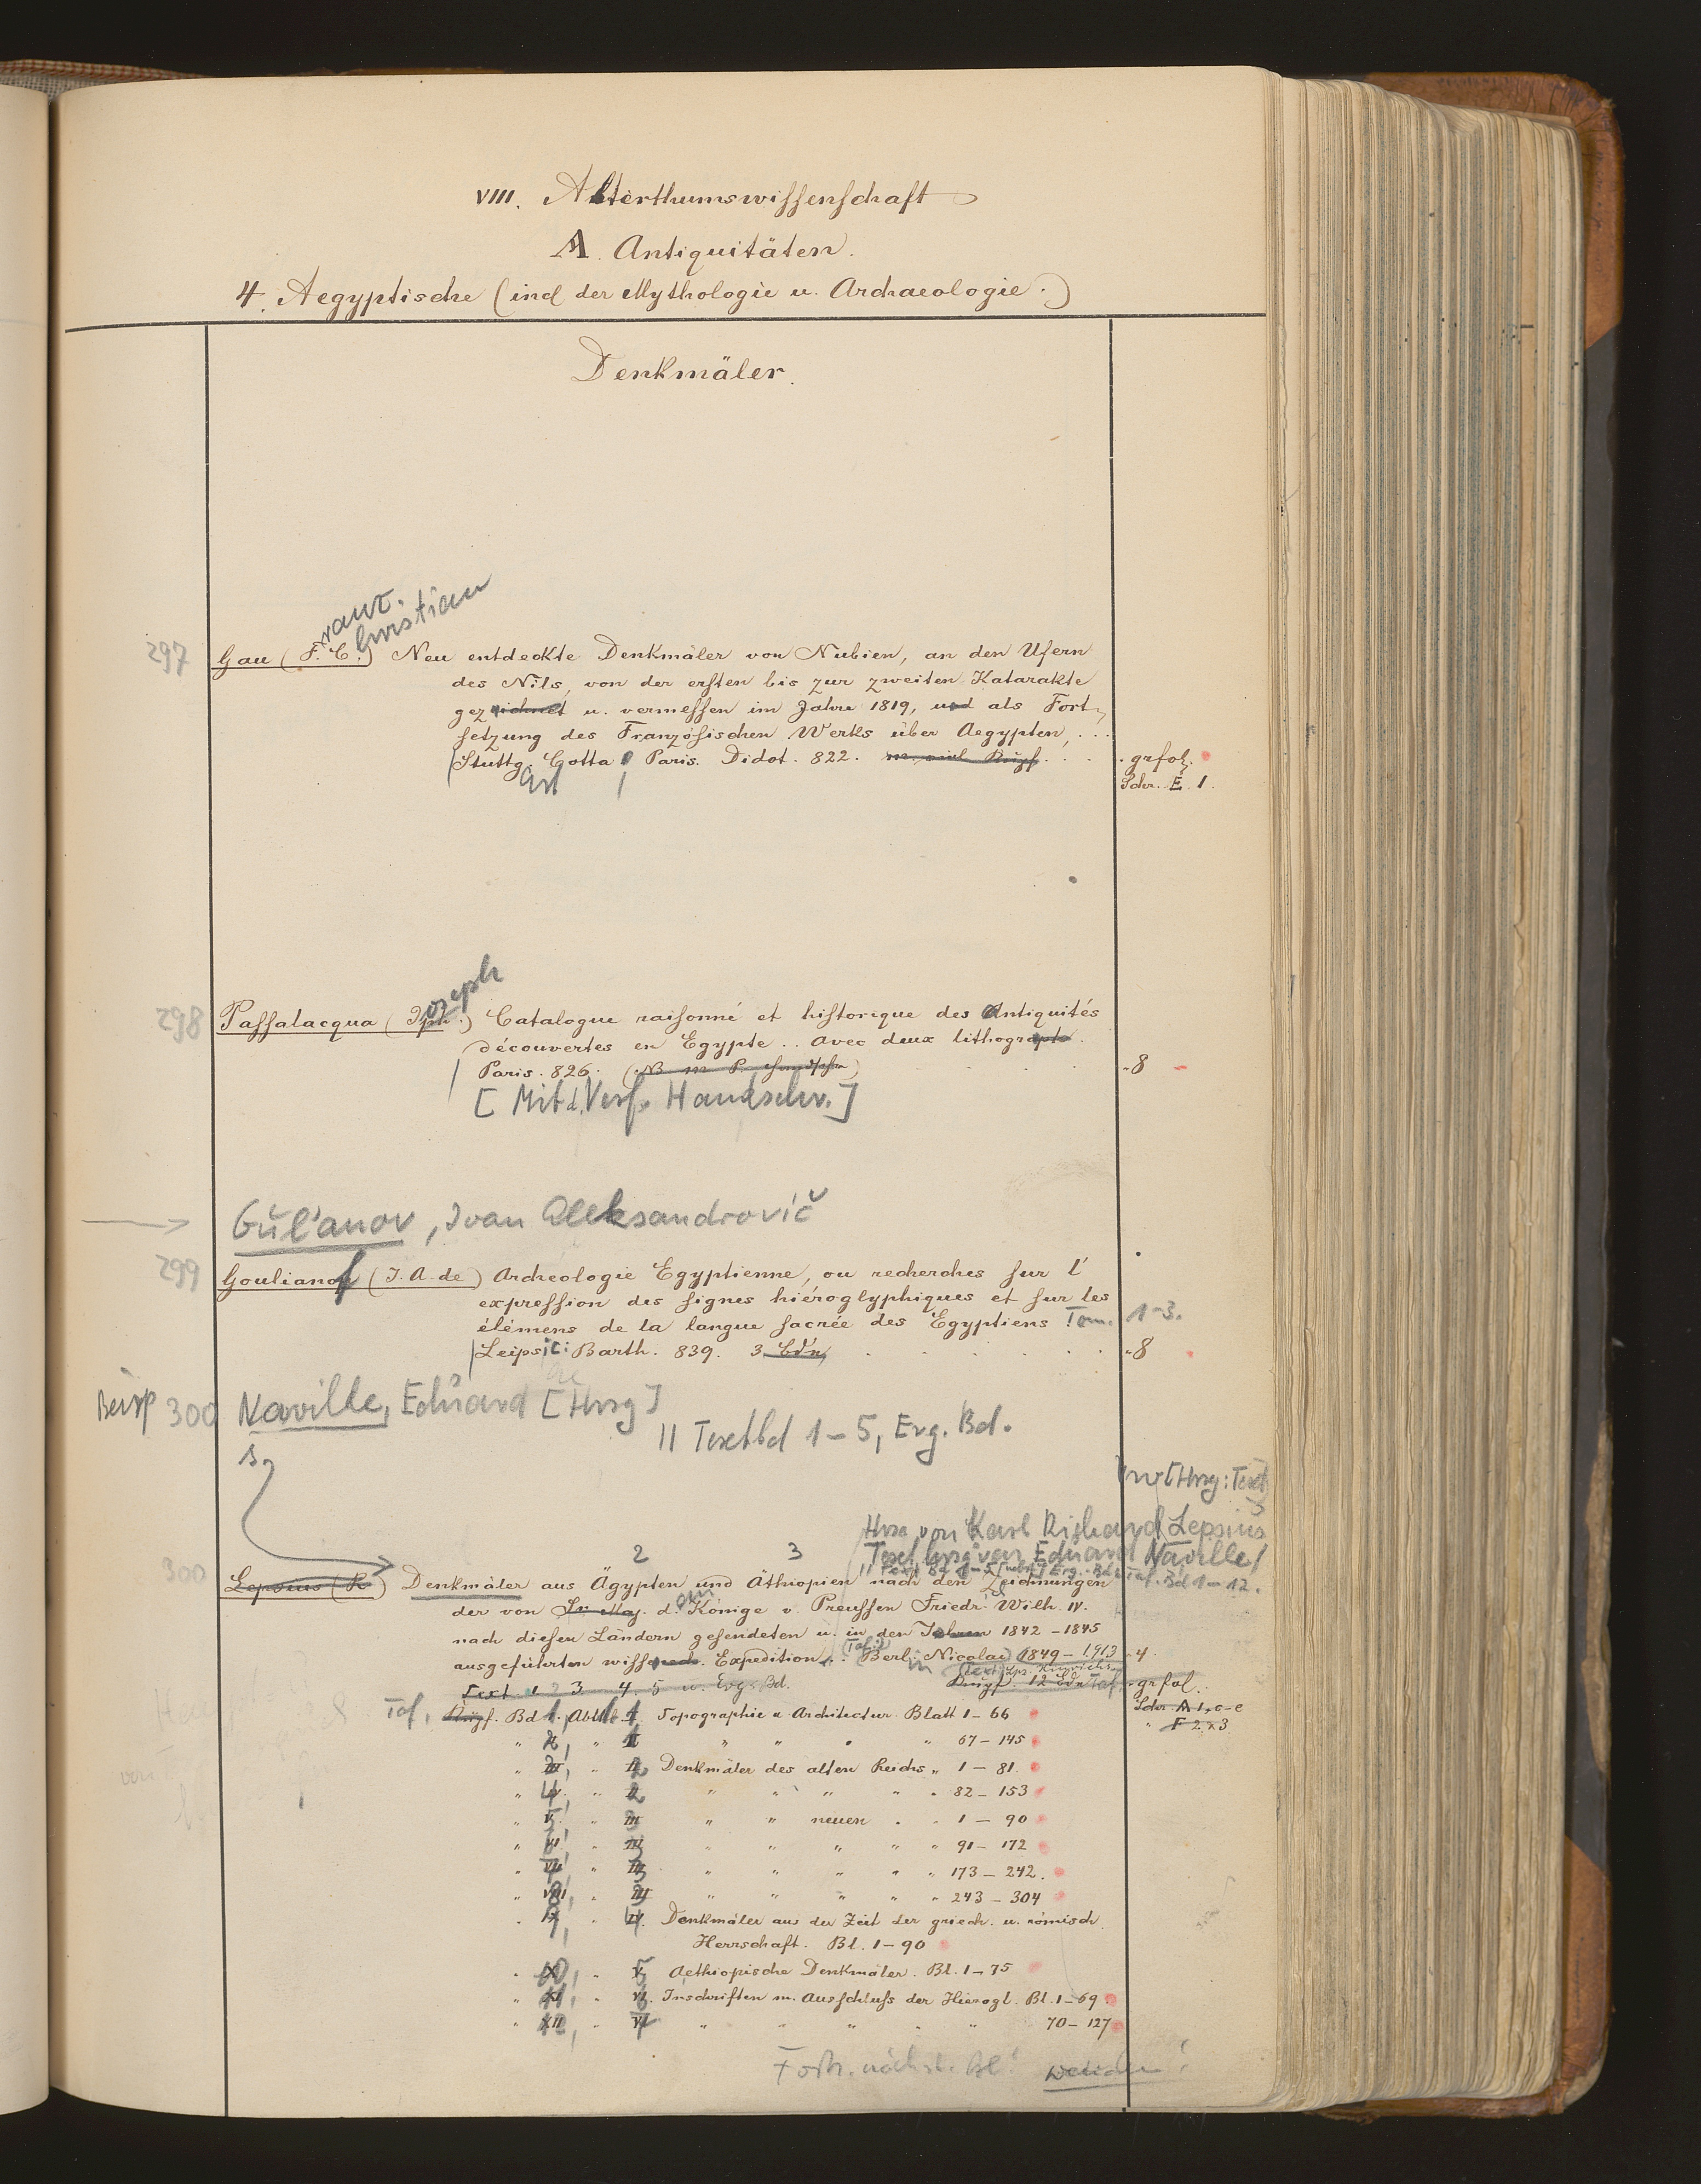 VIII. Alterthumswissenschaft
A. Antiquitäten.
4. Aegyptische (incl der Mythologie u. Archaeologie.)
Denkmäler.
ranz.
hristian
297 Gau (F. C.) Neu entdeckte Denkmäler von Nubien, an den Ufern
des Nils, von der ersten bis zur zweiten Katarakte
gezeichnet u. vermessen im Jahre 1819, und als Fort-
setzung des Französischen Werks über Aegypten, ...
Stuttg. Cotta, Paris. Didot. 822. . . . grfol.
Schr. E. 1.
oseph
298 Passalacqua (Jph.) Catalogue raisonné et historique des Antiquités
découvertes en Egypte .. avec deux lithogrаphs.
Paris. 826. . . . 8
[Mit d. Verf. Handschr.]
Gul'anov, Ivan Aleksandrovič
299 Goulianof (J. A. de) Archeologie Egyptienne, ou recherches sur l'
expression des signes hiéroglyphiques et sur les
élémens de la langue sacrée des Egyptiens Tom. 1-3.
Leipsic: Barth. 839. 3 Bdn . . . 8
300 Naville, Eduard [Hrsg]
|| Textbd 1-5, Erg. Bd.
s.
[Hrsg: Text]
Hrsg von Karl Richard Lepsius
Text hrsg von Eduard Naville
2 3
Erg. Bd. Taf. Bd 1-12.
300 Lepsius (R.) Denkmäler aus Ägypten und Äthiopien nach den Zeichnungen
der von Sr. Maj. d. Könige v. Preussen Friedr. Wilh. IV.
nach diesen Ländern gesendeten u. in den Jahren 1842-1845
ausgeführten wissensch. Expedition. Berl. Nicolai 1849-1913 4
Text 1 2 3 4. 5 u. Erg. Bd. 12 Bde Taf. grfol.
Taf. Bd 1. Abth. 1 Topographie u Architectur. Blatt 1-66 Schr. A 1, c-e
" 2, " I " " " " 67-145 " F 2 x 3.
" 3, " 2 Denkmäler des alten Reichs " 1-81.
" 4, " 2 " " " " " 82-153
" 5, " 3 " " neuen " " 1-90
" 6, " 3 " " " " " 91-172
" 7, " 3 " " " " " 173-242.
" 8, " 3 " " " " " 243-304
" 9, " 4. Denkmäler aus der Zeit der griech. u. römisch.
Herrschaft. Bl. 1-90
" 10, " 5 Aethiopische Denkmäler. Bl. 1-75
" 11, " 6. Inschriften m. Ausschluss der Hierogl. Bl. 1-69
" 12, " VI " " " " " 70-127
Forts. nächst. Bl!